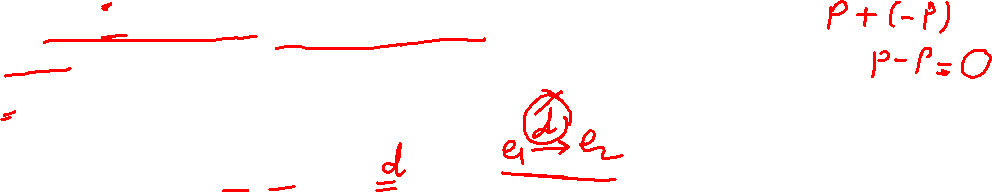 P + (-P)
P - P = 0
d
e₁ →ᵈ e₂